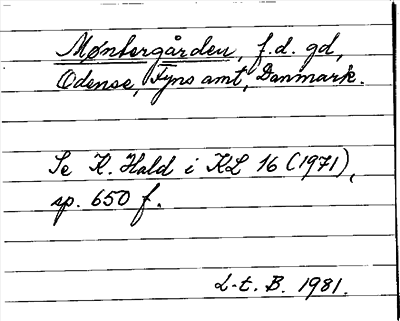 Møntergården, f.d. gd,
Odense, Fyns amt, Danmark.
Se K. Hald i KL 16 (1971),
sp. 650 f.
L-t. B. 1981.